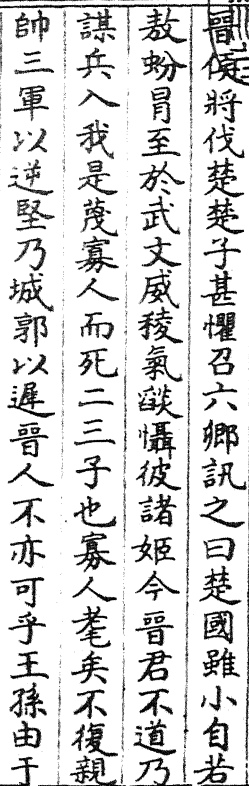 晉侯將伐楚楚子甚懼召六卿訊之曰楚國雖小自若
敖蚡冒至於武文威稜氣燄懾彼諸姬今晉君不道乃
謀兵入我是蔑寡人而死二三子也寡人耄矣不復親
帥三軍以逆堅乃城郭以遲晉人不亦可乎王孫由于